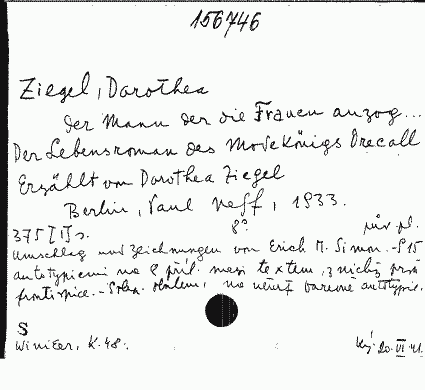 156746
Ziegel, Dorothea
Der Mann der die Frauen anzog...
Der Lebensroman des Modekönigs Drecall
Erzählt von Dorothea Ziegel
Berlin, Paul Neff, 1933.
375 [1] s. 8° pův. pl.
Umschlag und Zeichnungen von Erich M. Simon. - S 15
autotypiemi na 8 příl. mezi textem, z nichž prvá
frontispice. - obálkou, na němž barevné autotypie.
S
Winter, K. 48. Ký. 20. VI. 41.